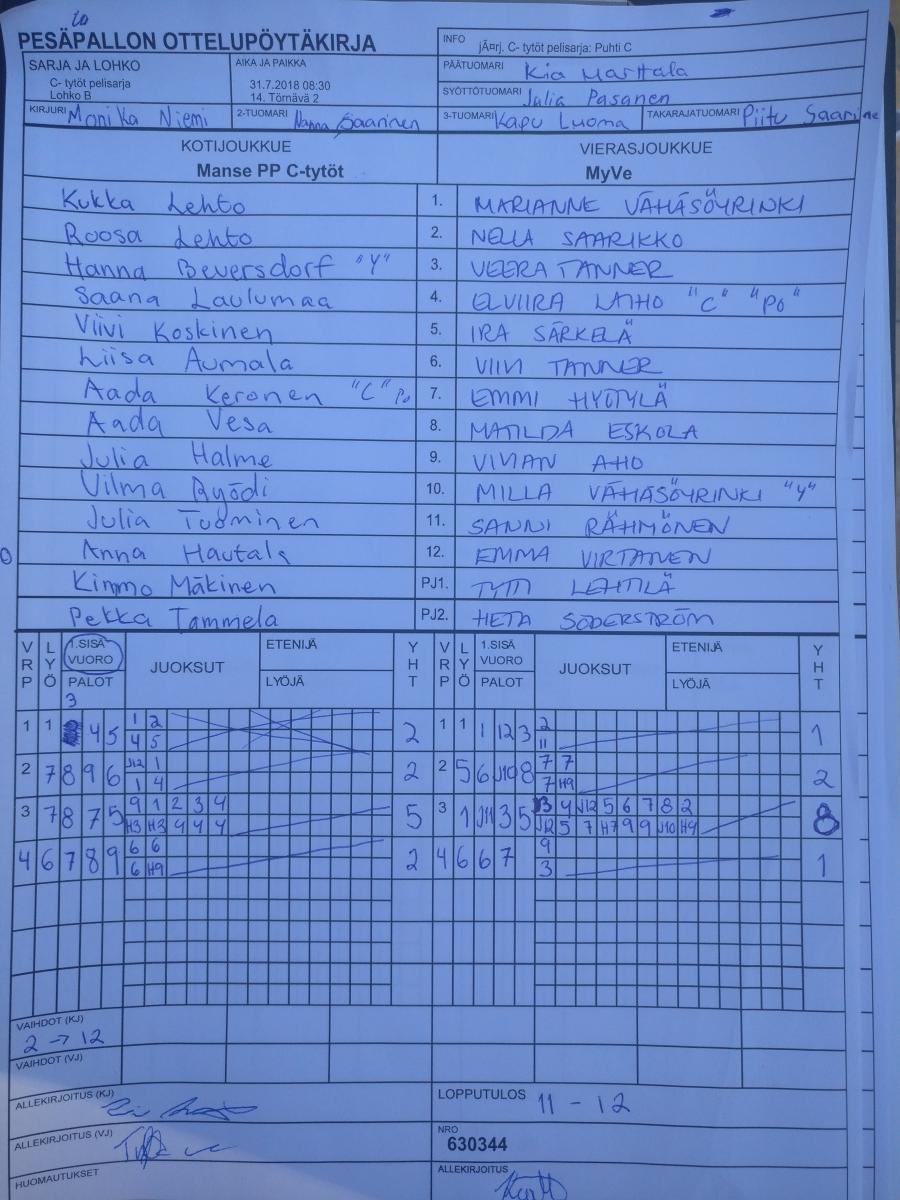 to
PESÄPALLON OTTELUPÖYTÄKIRJA
INFO jÃ¤rj. C- tytöt pelisarja: Puhti C
SARJA JA LOHKO
C- tytöt pelisarja
Lohko B
AIKA JA PAIKKA
31.7.2018 08:30
14. Törnävä 2
PÄÄTUOMARI Kia Marttala
SYÖTTÖTUOMARI Julia Pasanen
KIRJURI Monika Niemi 2-TUOMARI Nanna Saarinen 3-TUOMARI Kapu Luoma TAKARAJATUOMARI Piitu Saarine
KOTIJOUKKUE VIERASJOUKKUE
Manse PP C-tytöt MyVe
Kukka Lehto 1. MARIANNE VÄHÄSÖYRINKI
Roosa Lehto 2. NELLA SAARIKKO
Hanna Beversdorf "Y" 3. VEERA TANNER
Saana Laulumaa 4. ELVIIRA LAIHO "C" "PO"
Viivi Koskinen 5. IRA SÄRKELÄ
Liisa Aumala 6. VIIVI TANNER
Aada Keronen "C" Po 7. EMMI HYÖTYLÄ
Aada Vesa 8. MATILDA ESKOLA
Julia Halme 9. VIVIAN AHO
Vilma Ryödi 10. MILLA VÄHÄSÖYRINKI "Y"
Julia Tuominen 11. SANNI RÄHMÖNEN
Anna Hautala 12. EMMA VIRTANEN
Kimmo Mäkinen PJ1. TYTTI LEHTILÄ
Pekka Tammela PJ2. HETA SÖDERSTRÖM
VRP LYÖ 1.SISÄ VUORO PALOT JUOKSUT ETENIJÄ LYÖJÄ YHT VRP LYÖ 1.SISÄ VUORO PALOT JUOKSUT ETENIJÄ LYÖJÄ YHT
3
1 1 4 5 1 2 2 1 1 1 12 3 2 1
4 5 11
2 7 8 9 6 J12 1 2 2 5 6 J10 8 7 7 2
1 4 7 H9
3 7 8 7 5 9 1 2 3 4 5 3 1 J11 3 5 3 4 J12 5 6 7 8 2 8
H3 H3 4 4 4 J12 5 7 H7 9 9 J10 H9
4 6 7 8 9 6 6 2 4 6 6 7 9 1
6 H9 3
VAIHDOT (KJ)
2 → 12
VAIHDOT (VJ)
ALLEKIRJOITUS (KJ) LOPPUTULOS 11 - 12
ALLEKIRJOITUS (VJ) NRO
630344
HUOMAUTUKSET ALLEKIRJOITUS